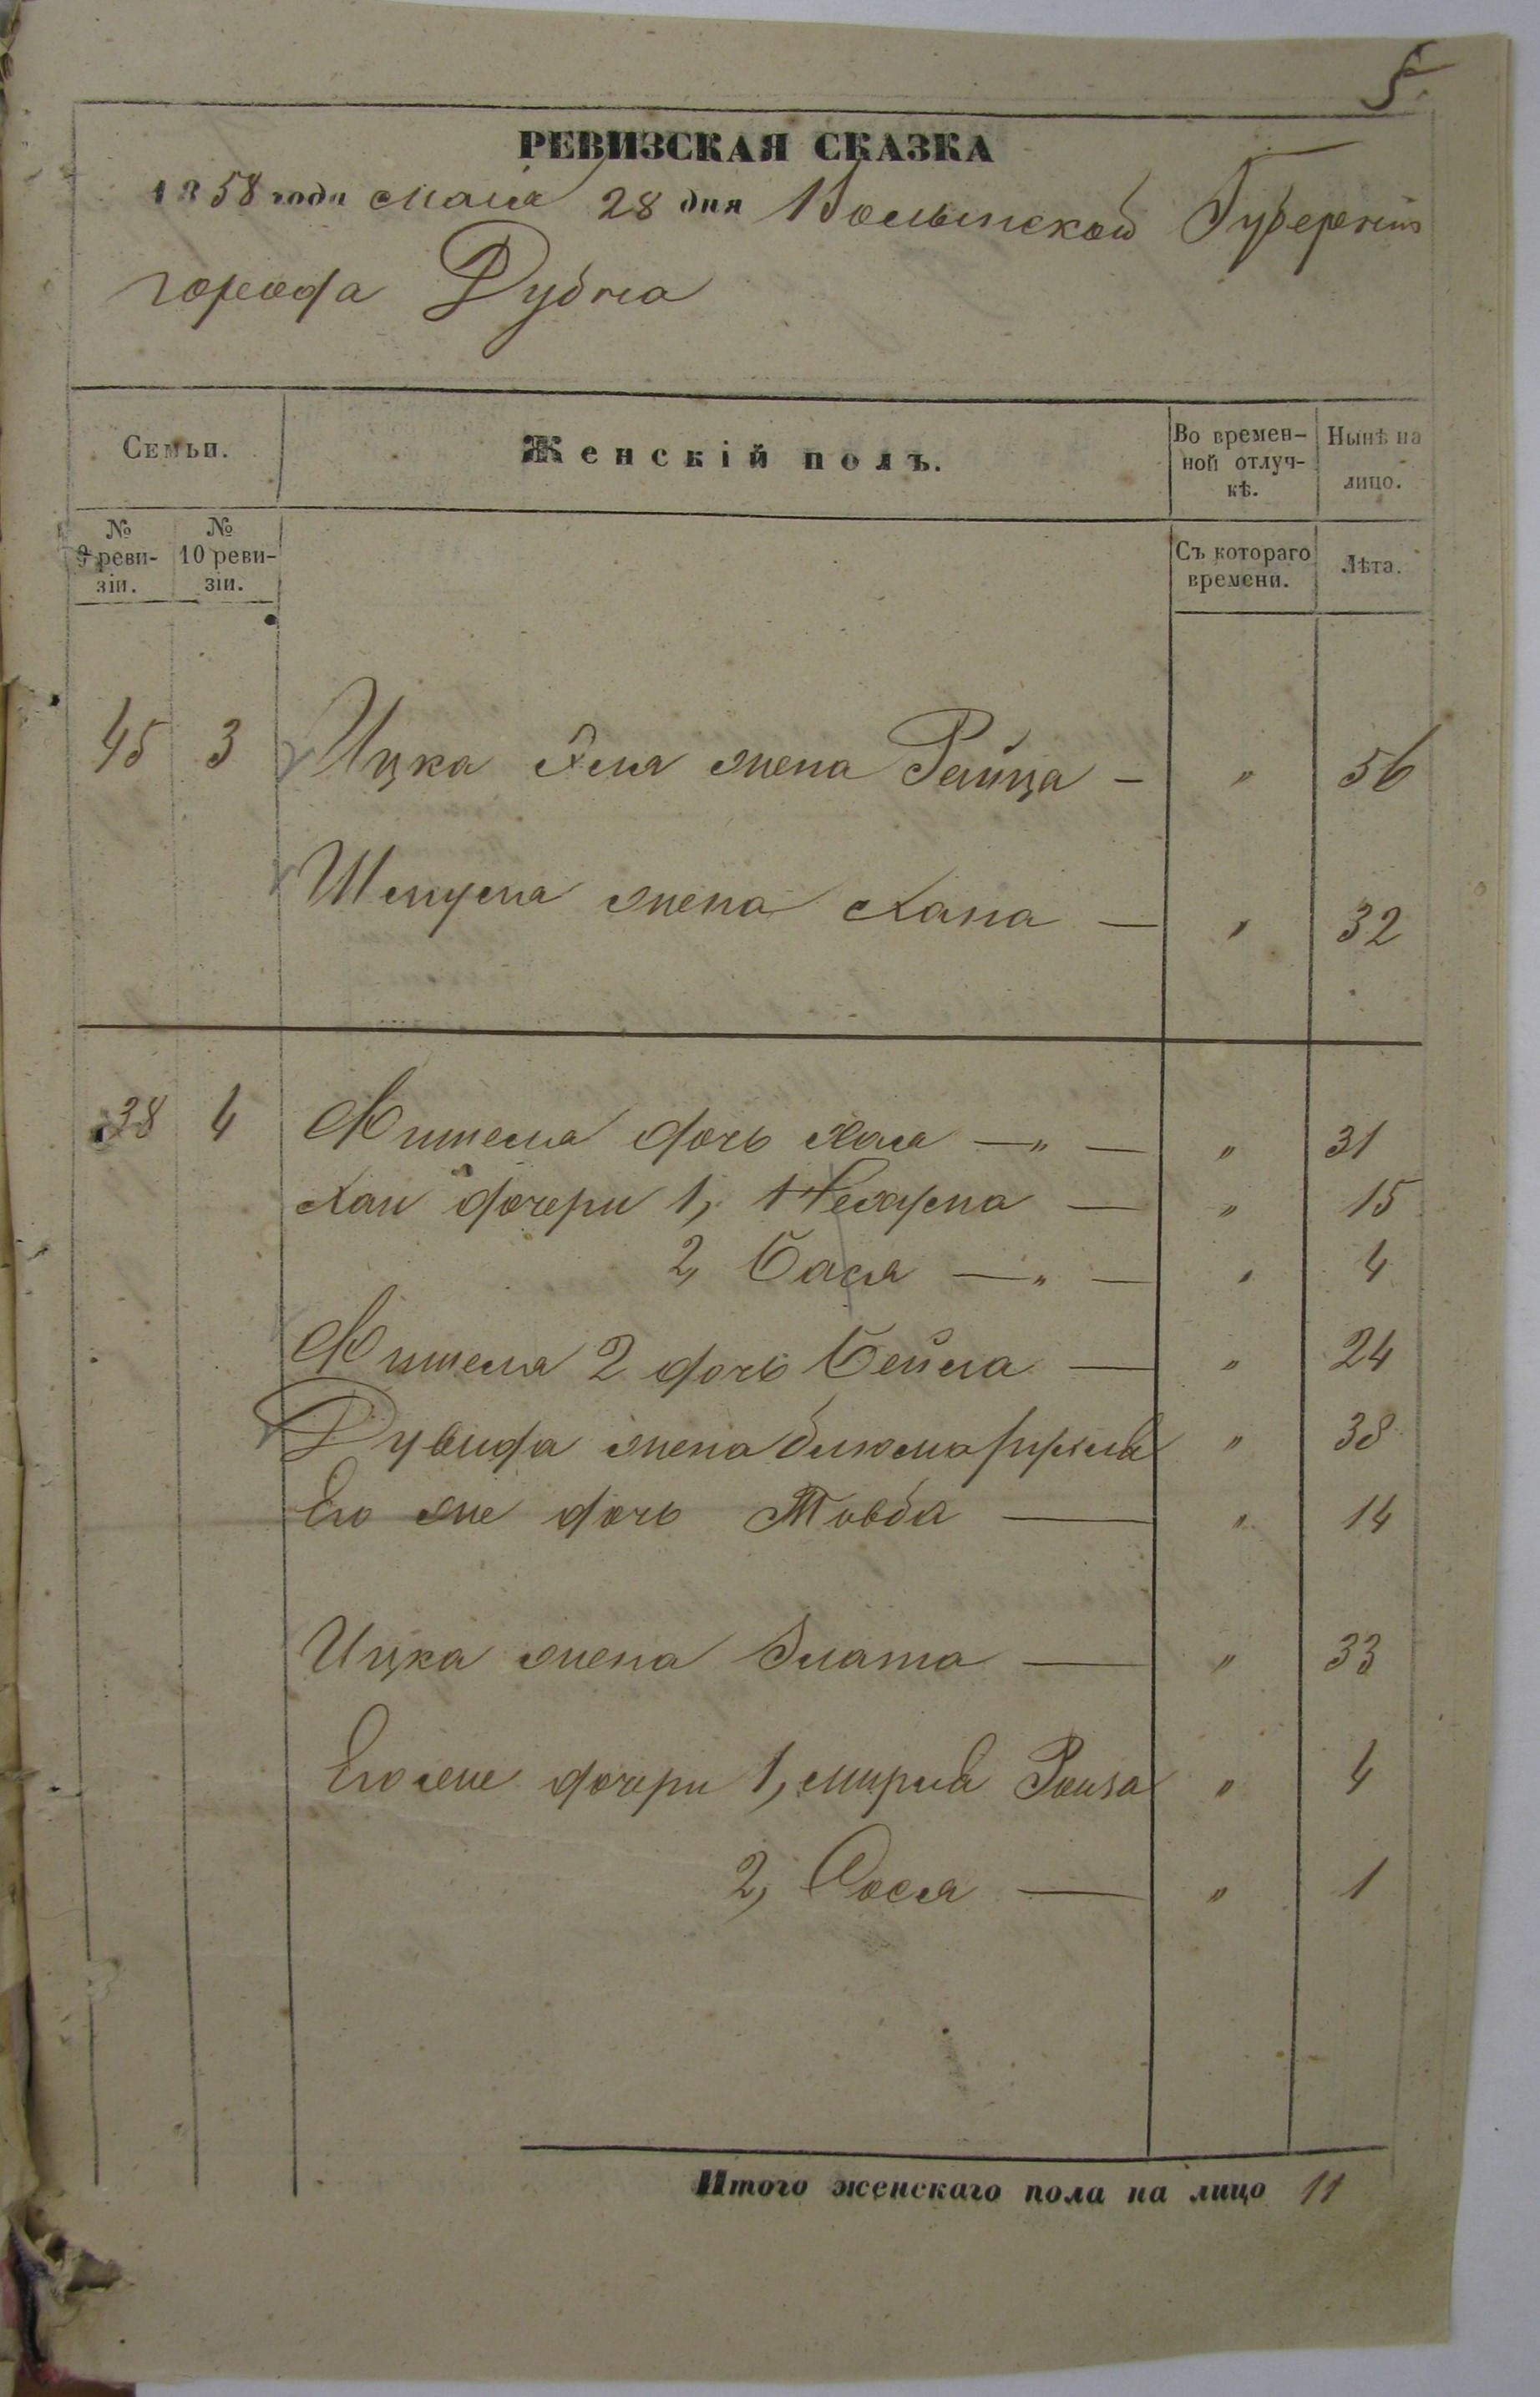 5.
РЕВИЗСКАЯ СКАЗКА
1858 года маія 28 дня Волынской Губерніи
города Дубна
Семьи.
Женскій полъ.
Во времен-
ной отлуч-
кѣ.
Ныне на
лицо.
№
9 реви-
зіи.
№
10 реви-
зіи.
Съ котораго
времени.
Лѣта.
45 3 Ицка Эля жена Рейца — " 56
Шмуля жена Хана — " 32
38 4 Мишеля дочь Хая — " — " 31
Хаи дочери 1, Нехума — " 15
2, Бася — " — " 4
Мишеля 2 дочь Бейла — " 24
Дувида жена Блюма " 38
Его же дочь Товба — " 14
Ицка жена Злата — " 33
Его же дочери 1, Мирля Ройза " 4
2, Сося — " 1
Итого женскаго пола на лицо 11